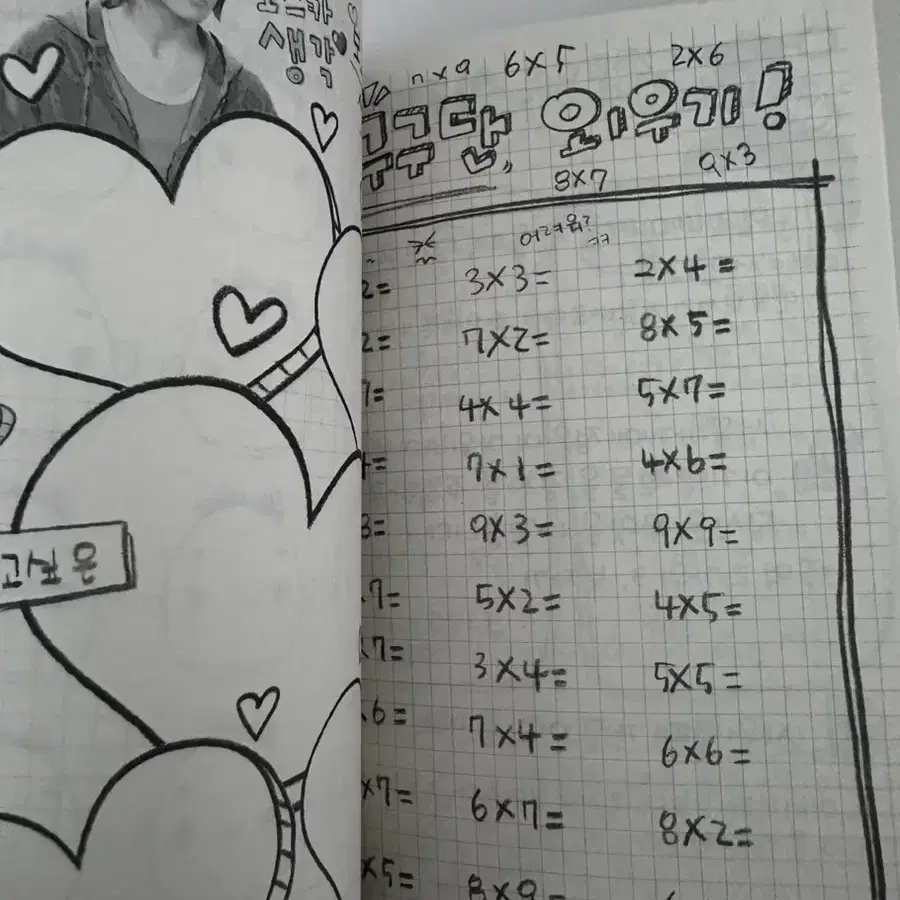 생각
고딕은
n×9 6×5 2×6
구구단 외우기!
8×7 9×3
2= 3×3= 2×4=
2= 7×2= 8×5=
7= 4×4= 5×7=
= 7×1= 4×6=
3= 9×3= 9×9=
7= 5×2= 4×5=
×7= 3×4= 5×5=
6= 7×4= 6×6=
×7= 6×7= 8×2=
×5= 8×9=